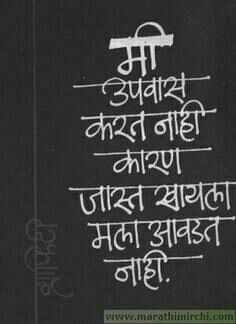 मी
उपवास
करत नाही
कारण
जास्त खायला
मला आवडत
नाही.
www.marathimirchi.com